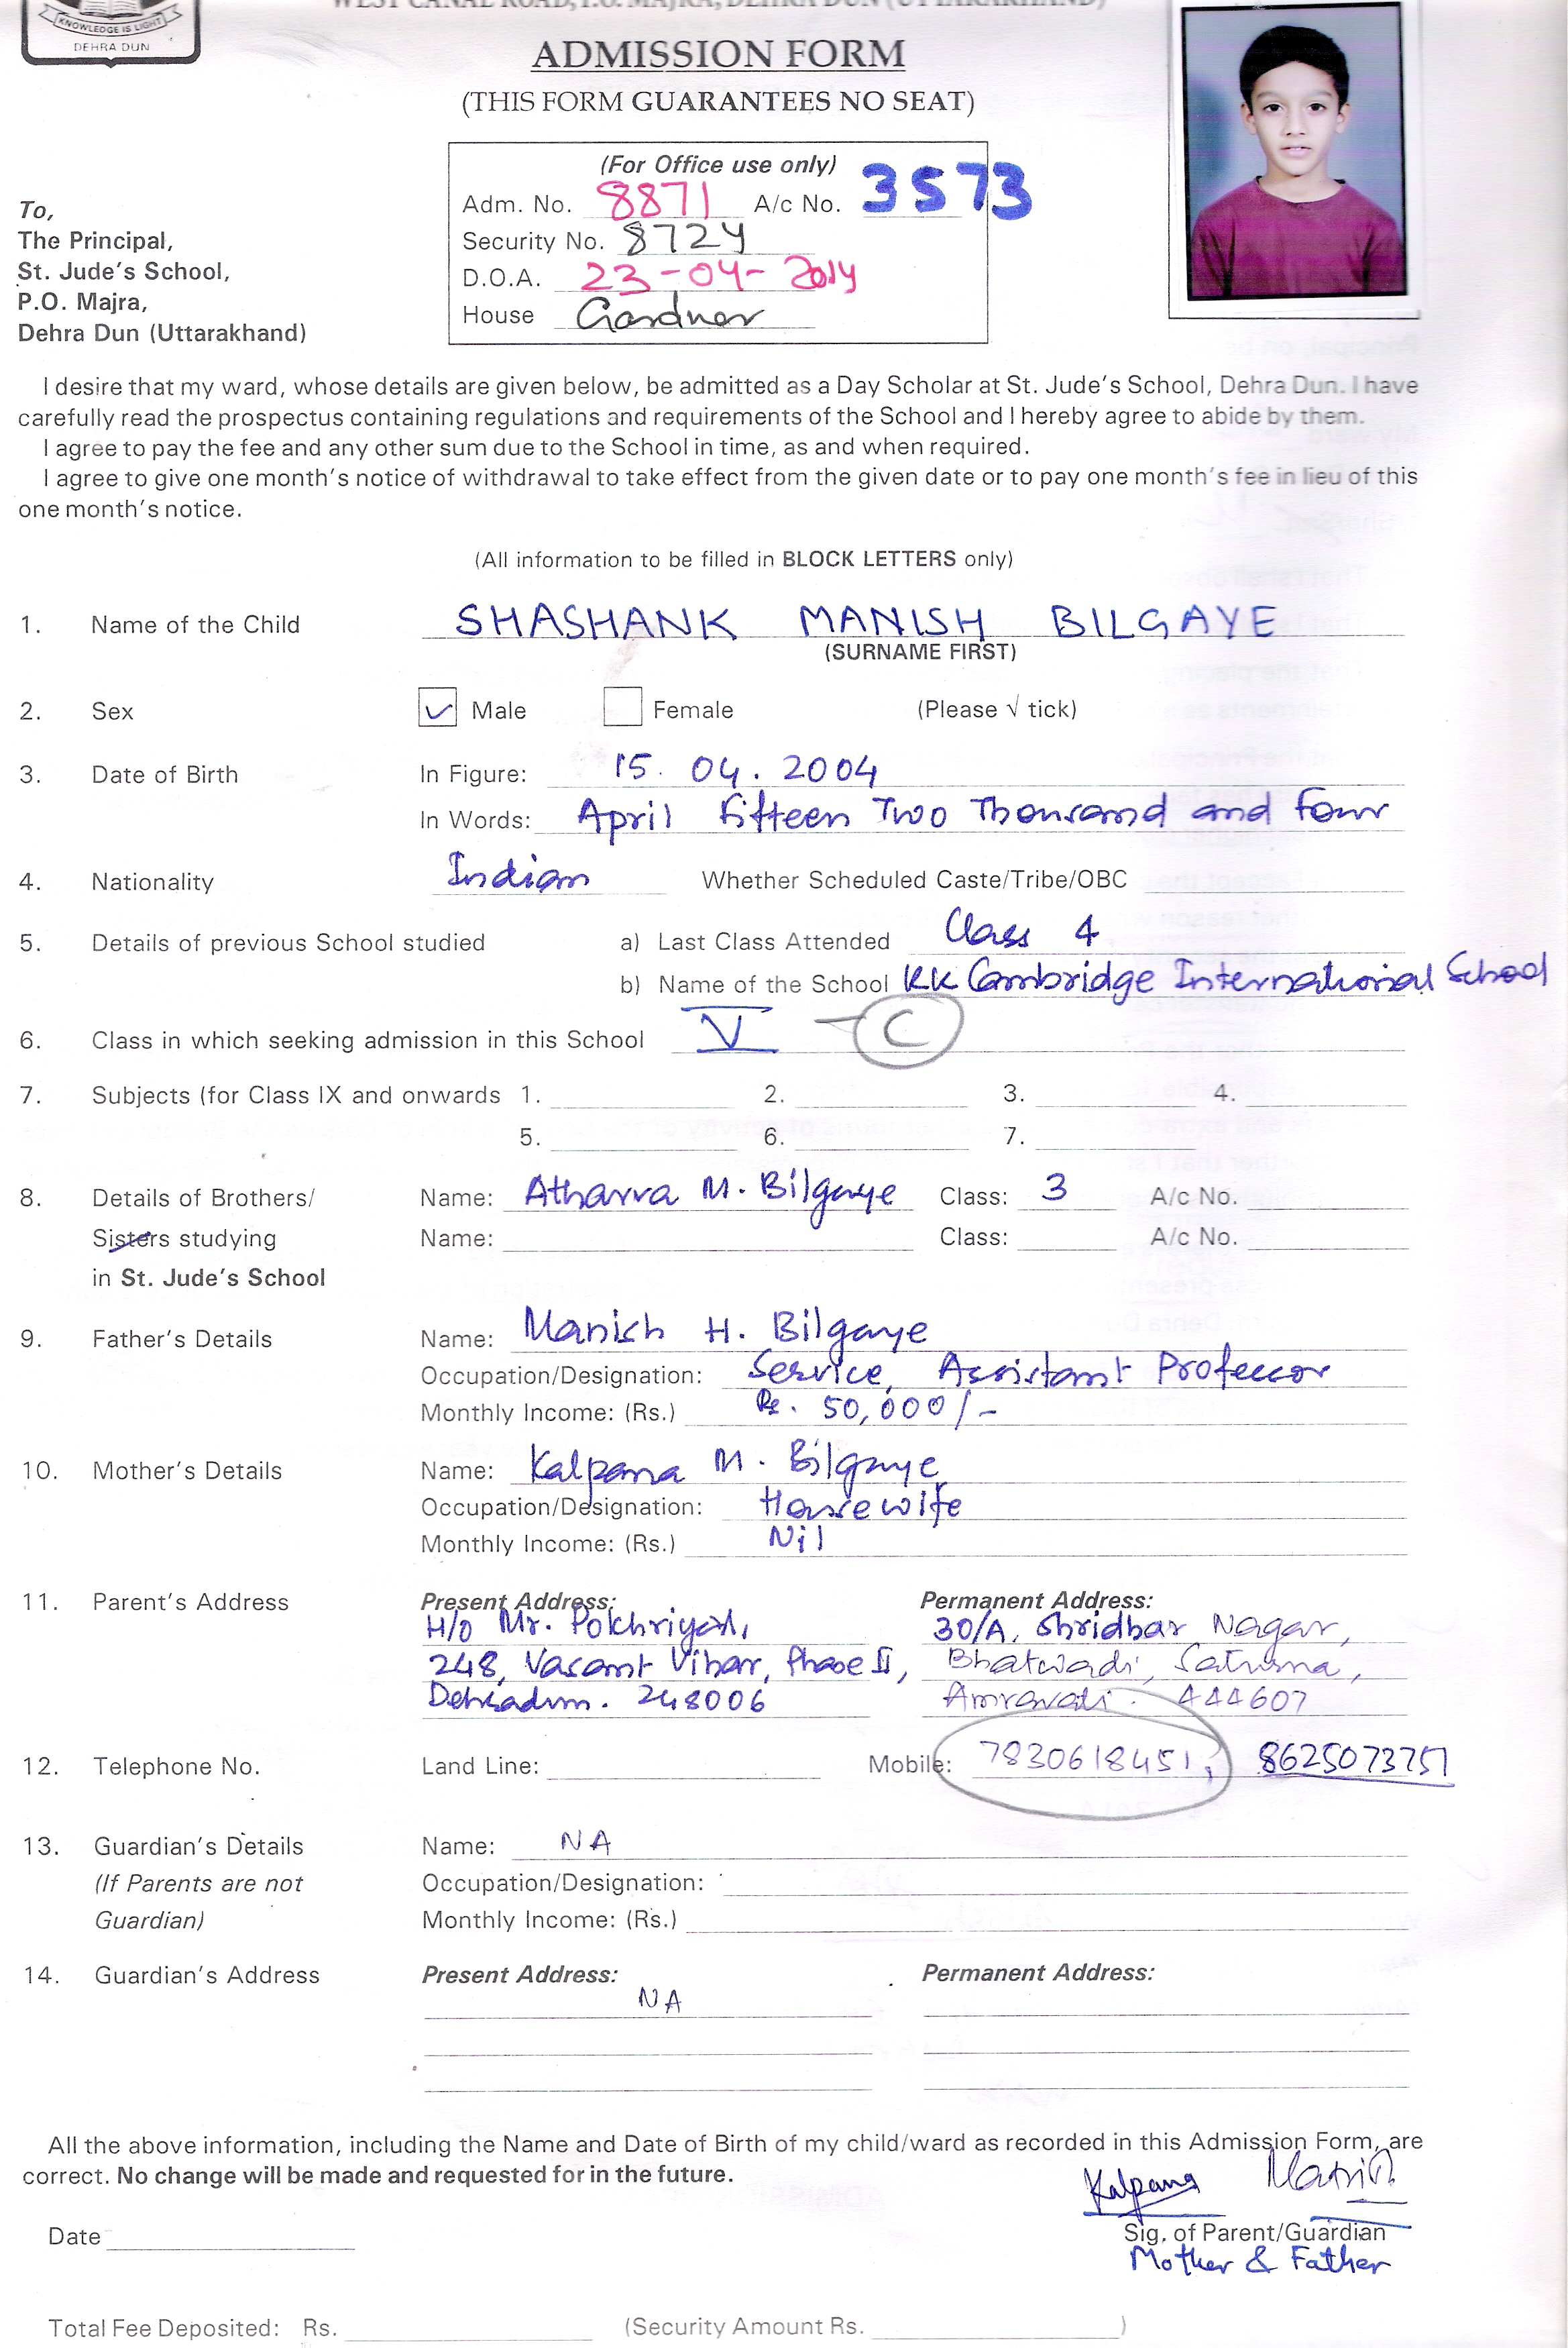 WEST CANAL ROAD, P.O. MAJRA, DEHRA DUN (UTTARAKHAND)
KNOWLEDGE IS LIGHT
DEHRA DUN
ADMISSION FORM
(THIS FORM GUARANTEES NO SEAT)
(For Office use only)
Adm. No. 8871 A/c No. 3573
Security No. 8724
D.O.A. 23-04-2014
House Gardner
To,
The Principal,
St. Jude's School,
P.O. Majra,
Dehra Dun (Uttarakhand)
I desire that my ward, whose details are given below, be admitted as a Day Scholar at St. Jude's School, Dehra Dun. I have
carefully read the prospectus containing regulations and requirements of the School and I hereby agree to abide by them.
I agree to pay the fee and any other sum due to the School in time, as and when required.
I agree to give one month's notice of withdrawal to take effect from the given date or to pay one month's fee in lieu of this
one month's notice.
(All information to be filled in BLOCK LETTERS only)
1. Name of the Child SHASHANK MANISH BILGAYE
(SURNAME FIRST)
2. Sex ✓ Male Female (Please √ tick)
3. Date of Birth In Figure: 15. 04. 2004
In Words: April Fifteen Two Thousand and Four
4. Nationality Indian Whether Scheduled Caste/Tribe/OBC
5. Details of previous School studied a) Last Class Attended Class 4
b) Name of the School KK Cambridge International School
6. Class in which seeking admission in this School V - C
7. Subjects (for Class IX and onwards 1. 2. 3. 4.
5. 6. 7.
8. Details of Brothers/ Name: Atharva M. Bilgaye Class: 3 A/c No.
Sisters studying Name: Class: A/c No.
in St. Jude's School
9. Father's Details Name: Manish H. Bilgaye
Occupation/Designation: Service, Assistant Professor
Monthly Income: (Rs.) Rs. 50,000/-
10. Mother's Details Name: Kalpana M. Bilgaye
Occupation/Designation: Housewife
Monthly Income: (Rs.) Nil
11. Parent's Address Present Address: Permanent Address:
H/O Mr. Pokhriyal, 30/A, Shridhar Nagar,
248, Vasant Vihar, Phase II, Bhatwadi, Saturna,
Dehradun. 248006 Amravati. 444607
12. Telephone No. Land Line: Mobile: 7830618451, 8625073751
13. Guardian's Details Name: NA
(If Parents are not Occupation/Designation:
Guardian) Monthly Income: (Rs.)
14. Guardian's Address Present Address: Permanent Address:
NA
All the above information, including the Name and Date of Birth of my child/ward as recorded in this Admission Form, are
correct. No change will be made and requested for in the future.
Kalpana Manish
Date Sig. of Parent/Guardian
Mother & Father
Total Fee Deposited: Rs. (Security Amount Rs. )